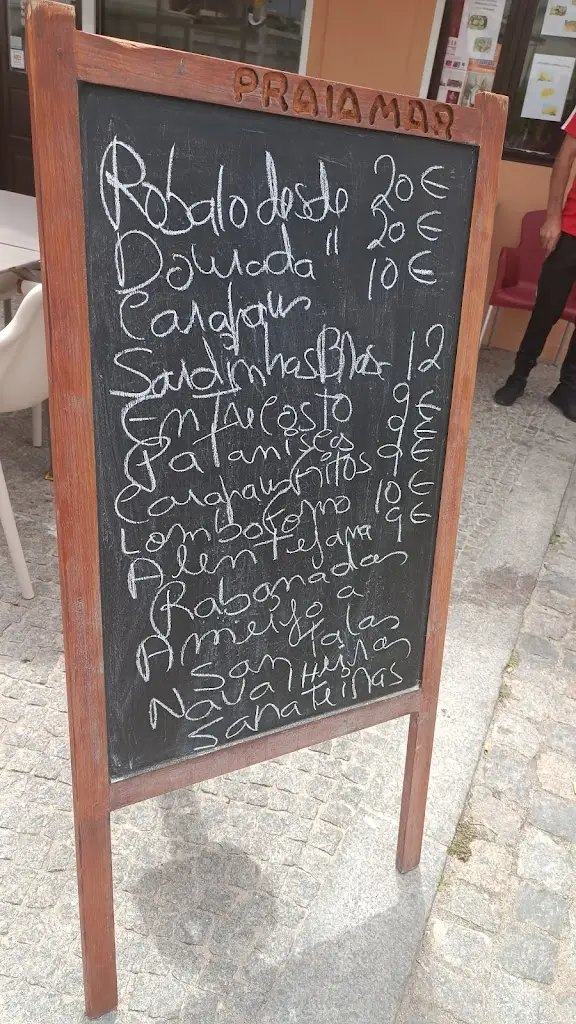 PRAIAMAR
Robalo desde 20€
Dourada " 20€
Carapau 10€
Sardinhas 12
Entrecosto 9€
Pataniscas 9€
Carapaus Fritos 9€
Lombo Forno 10€
Alentejana 9€
Rabanadas
Ameijoa
Santolas
Navalheiras
Sapateiras